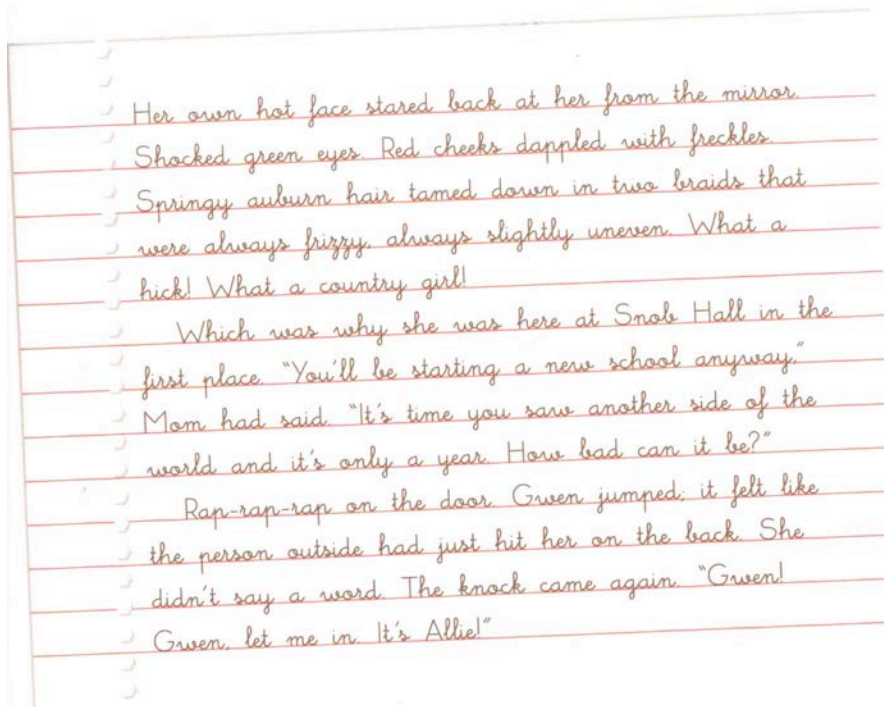 Her own hot face stared back at her from the mirror.
Shocked green eyes. Red cheeks dappled with freckles.
Springy auburn hair tamed down in two braids that
were always frizzy, always slightly uneven. What a
hick! What a country girl!
Which was why she was here at Snob Hall in the
first place. "You'll be starting a new school anyway,"
Mom had said. "It's time you saw another side of the
world and it's only a year. How bad can it be?"
Rap-rap-rap on the door. Gwen jumped; it felt like
the person outside had just hit her on the back. She
didn't say a word. The knock came again. "Gwen!
Gwen, let me in. It's Allie!"